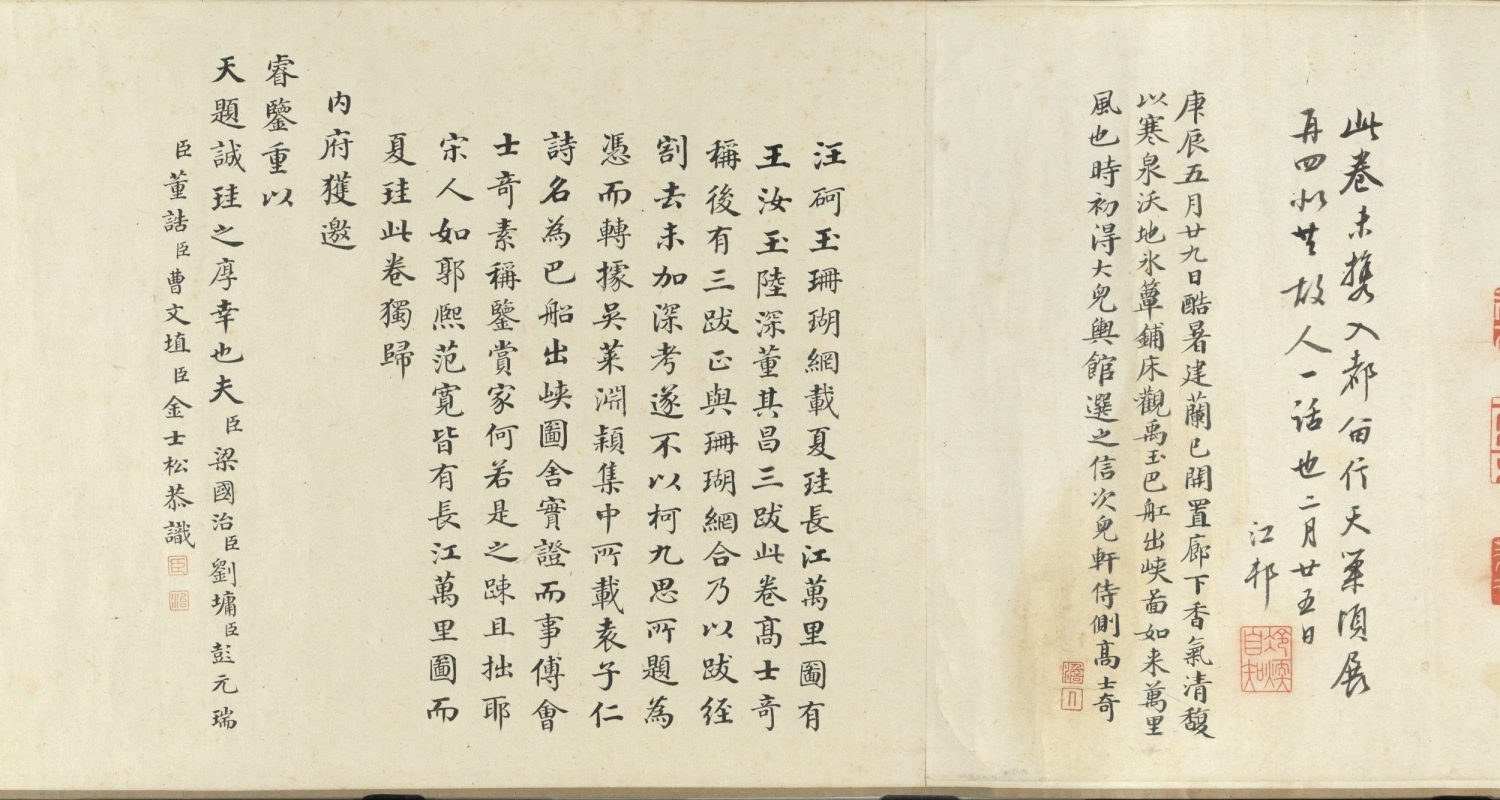 此卷未攜入都留佇天籟頃展
再四如共故人一話也二月廿五日
江邨
庚辰五月廿九日酷暑建蘭已開置廊下香氣清馥
以寒泉沃地氷簟鋪床觀禹玉巴舡出峽啚如来萬里
風也時初得大兒輿館選之信次兒軒侍側髙士奇
汪砢玉珊瑚網載夏珪長江萬里圖有
王汝玉陸深董其昌三跋此卷髙士奇
稱後有三跋正與珊瑚網合乃以跋經
割去未加深考遂不以柯九思所題為
憑而轉據吳萊淵穎集中所載袁子仁
詩名為巴船出峽圖舍實證而事傅會
士奇素稱鑒賞家何若是之踈且拙耶
宋人如郭熈范寛皆有長江萬里圖而
夏珪此卷獨歸
内府獲邀
睿鑒重以
天題誠珪之厚幸也夫臣梁國治臣劉墉臣彭元瑞
臣董誥臣曹文埴臣金士松恭識